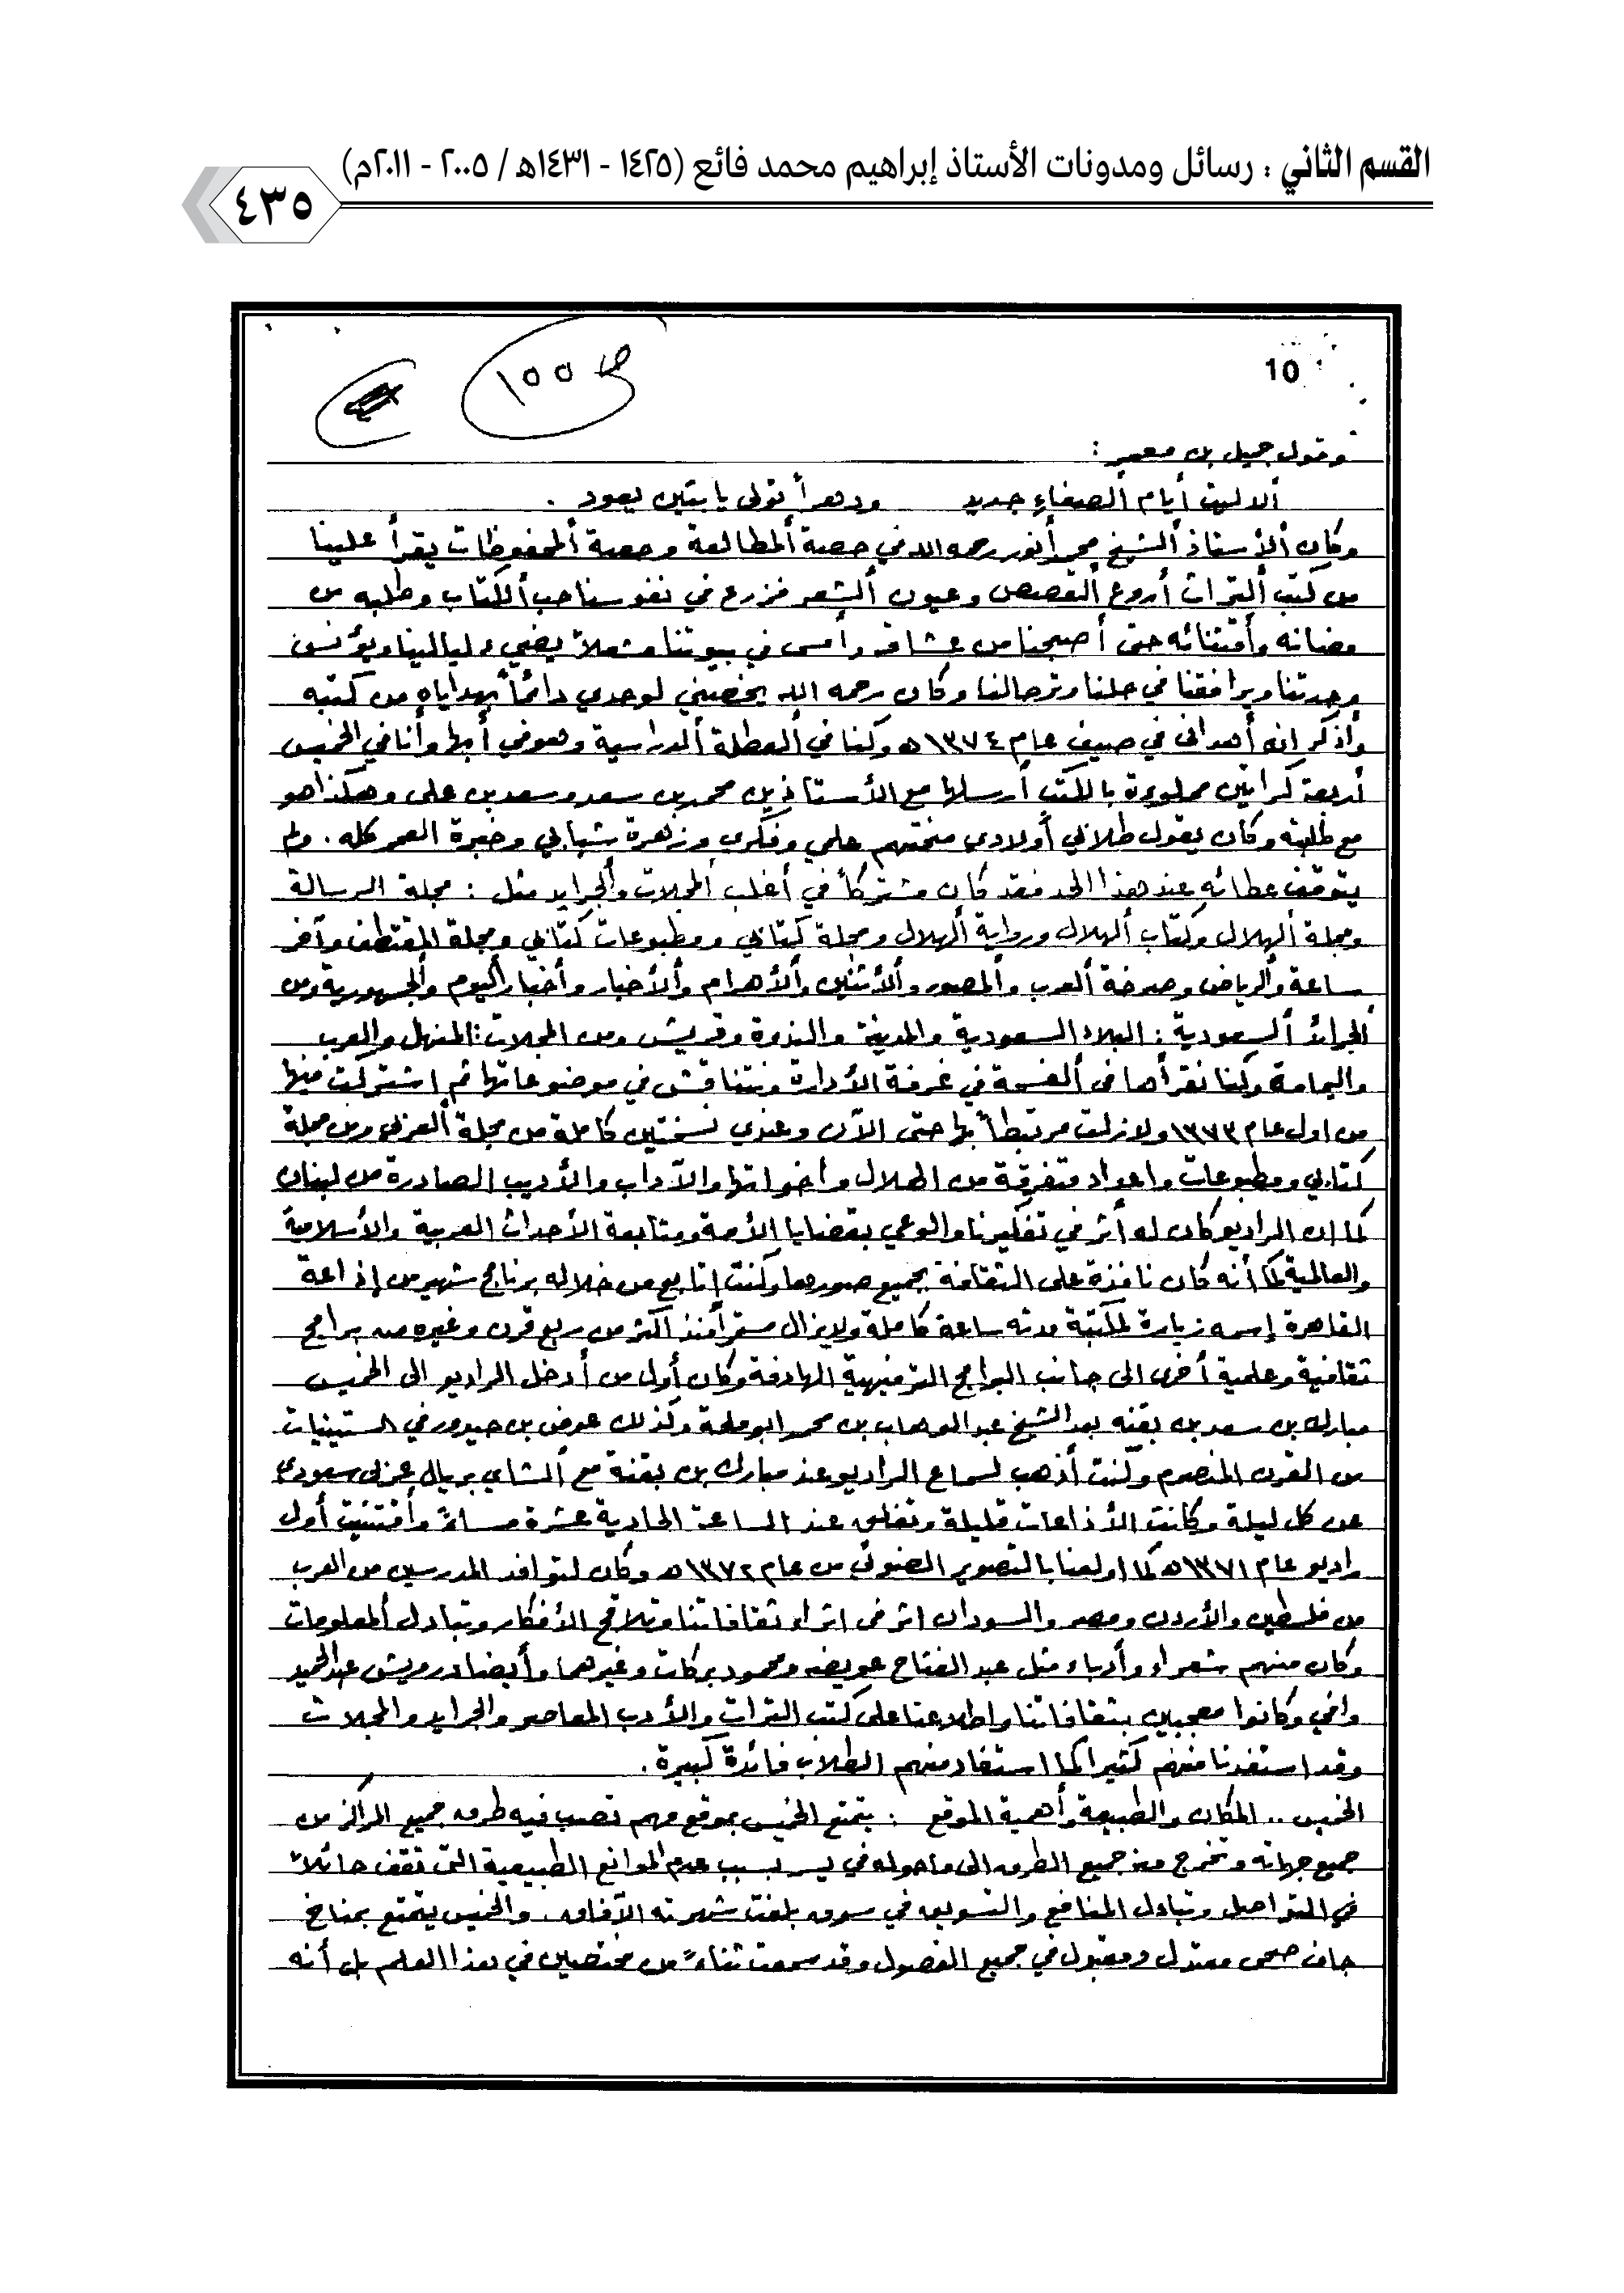 القسم الثاني : رسائل ومدونات الأستاذ إبراهيم محمد فائع (١٤٢٥ - ١٤٣١هـ / ٢٠٠٥ - ٢٠١١م)
٤٣٥
10
ص ١٥٥
وقول جميل بن معمر :
ألا ليت أيام ألصفاءِ جديد ودهراً تولى يا بثين يعود .
وكان ألأستاذ ألشيخ محمد أنور رحمه الله في حصة ألمطالعة وحصة ألمحفوظات يقرأ علينا
من كتب ألتراث أروع ألقصص وعيون ألشعر فزرع في نفوسنا حب ألكتاب وطلبه من
مضانه وأقتنائه حتى أصبحنا من عشاقه وأمسى في بيوتنا مشعلاً يضيء ليالينا ويؤنس
وحدتنا ويرافقنا في حلنا وترحالنا وكان رحمه الله يخصني لوحدي دائماً بهداياه من كتبه
وأذكر إنه أهدانى في صيف عام ١٣٧٤هـ وكنا في ألعطلة ألدراسية وهو في أبها وأنا في الخميس
أربعة كراتين مملوءة بالكتب أرسلها مع الأستاذين محمد بن سعد وسعد بن على وهكذا هو
مع طلبته وكان يقول طلابي أولادي منحتهم علمي وفكري وزهرة شبابي وخبرة العمر كله . ولم
يتوقف عطائه عند هذا الحد فقد كان مشتركاً في أغلب ألمجلات وألجرايد مثل : مجلة الرسالة
ومجلة ألهلال وكتاب ألهلال ورواية ألهلال ومجلة كتابي ومطبوعات كتابي ومجلة المقتطف وآخر
ساعة وألرياض وصرخة ألعرب وألمصور وألأثنين وألأهرام وألأخبار وأخبار أليوم وألجمهورية ومن
ألجرائد ألسعودية : البلاد السعودية والمدينة والندوة وقريش ومن المجلات : المنهل والعرب
واليمامة وكنا نقرأها فى ألفسحة في غرفة الأدارة ونتناقش في موضوعاتها ثم اشتركت فيها
من اول عام ١٣٧٣ ولازلت مرتبطاً بها حتى الآن وعندي نسختين كاملة من مجلة ألعربي ومن مجلة
كتابي ومطبوعات واعداد متفرقة من الهلال واخواتها والآداب والأديب الصادرة من لبنان
كما ان الراديو كان له أثر في تفكيرنا والوعي بقضايا الأمة ومتابعة الأحداث العربية والأسلامية
والعالمية كما أنه كان نافذة على الثقافة بجميع صورها وكنت اتابع من خلاله برنامج شهير من إذاعة
القاهرة إسمه زيارة لمكتبة مدته ساعة كاملة ولايزال مستمراً منذ اكثر من ربع قرن وغيره من برامج
ثقافية وعلمية أخرى الى جانب البرامج الترفيهية الهادفة وكان أول من أدخل الراديو الى الخميس
مبارك بن سعد بن بقنه بعد الشيخ عبد الوهاب بن محمد ابو ملحة وكذلك عوض بن حيدور في الستينيات
من القرن المنصرم وكنت أذهب لسماع الراديو عند مبارك بن بقنة مع ألشاي بريال عربى سعودي
عن كل ليلة وكانت الأذاعات قليلة وتغلق عند الساعة الحادية عشرة مساءً وأقتنيت أول
راديو عام ١٣٧١هـ كما اولعنا بالتصوير الضوئي من عام ١٣٧٢هـ وكان لتوافد المدرسين من العرب
من فلسطين والأردن ومصر والسودان اثر فى اثراء ثقافاتنا وتلاقح الأفكار وتبادل ألمعلومات
وكان منهم شعراء وأدباء مثل عبد الفتاح عويضه ومحمود بركات وغيرهما وأيضا درويش عبد الحميد
وافي وكانوا معجبين بثقافاتنا واطلاعنا على كتب التراث والأدب المعاصر والجرايد والمجلات
وقد استفدنا منهم كثيرا كما استفاد منهم الطلاب فائدة كبيرة .
الخميس .. المكان والطبيعة وأهمية الموقع : يتمتع الخميس بموقع مهم تصب فيه طرق جميع المراكز من
جميع جهاته وتخرج منه جميع الطرق الى ماحوله في يسر بسبب عدم الموانع الطبيعية التى تقف حائلاً
في التواصل وتبادل المنافع والتسويق في سوق بلغت شهرته الآفاق . والخميس يتمتع بمناخ
جاف صحى معتدل ومقبول في جميع الفصول وقد سمعت ثناءً من مختصين في هذا العلم بل أنه